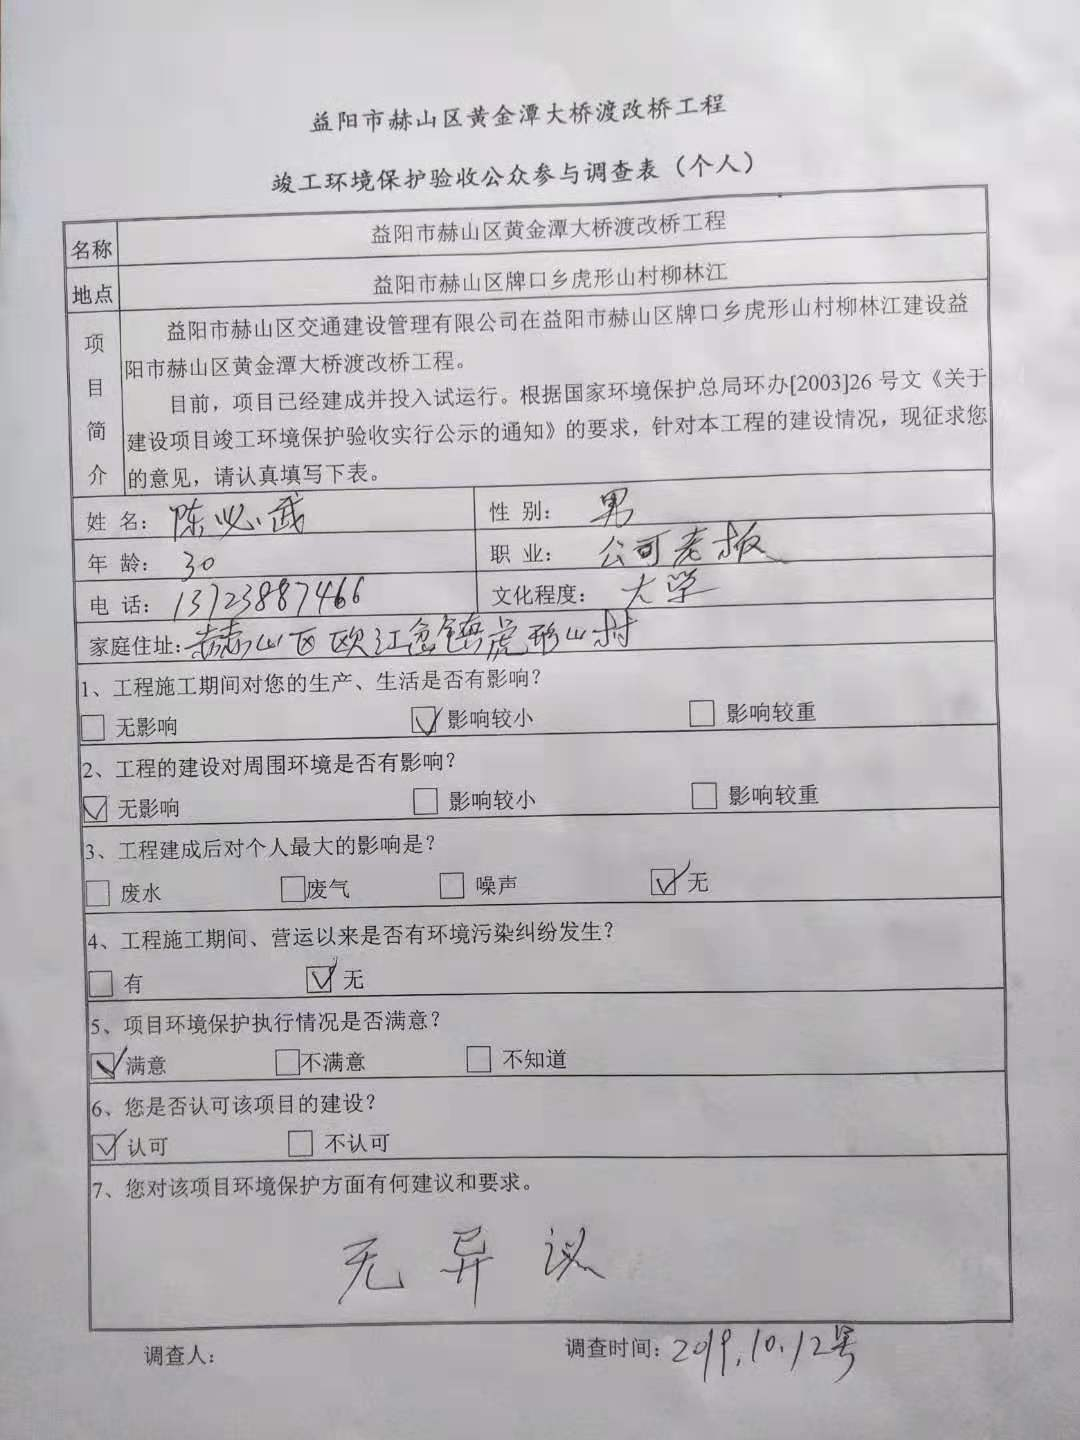 益阳市赫山区黄金潭大桥渡改桥工程
竣工环境保护验收公众参与调查表（个人）
名称 益阳市赫山区黄金潭大桥渡改桥工程
地点 益阳市赫山区牌口乡虎形山村柳林江
项目简介
益阳市赫山区交通建设管理有限公司在益阳市赫山区牌口乡虎形山村柳林江建设益
阳市赫山区黄金潭大桥渡改桥工程。
目前，项目已经建成并投入试运行。根据国家环境保护总局环办[2003]26 号文《关于
建设项目竣工环境保护验收实行公示的通知》的要求，针对本工程的建设情况，现征求您
的意见，请认真填写下表。
姓 名： 陈必武 性 别： 男
年 龄： 30 职 业： 公司老板
电 话： 13723887466 文化程度： 大学
家庭住址：赫山区欧江岔镇虎形山村
1、工程施工期间对您的生产、生活是否有影响？
□ 无影响 ☑ 影响较小 □ 影响较重
2、工程的建设对周围环境是否有影响？
☑ 无影响 □ 影响较小 □ 影响较重
3、工程建成后对个人最大的影响是？
□ 废水 □废气 □ 噪声 ☑ 无
4、工程施工期间、营运以来是否有环境污染纠纷发生？
□ 有 ☑ 无
5、项目环境保护执行情况是否满意？
☑ 满意 □不满意 □ 不知道
6、您是否认可该项目的建设？
☑ 认可 □ 不认可
7、您对该项目环境保护方面有何建议和要求。
无异议
调查人： 调查时间：2019.10.12号